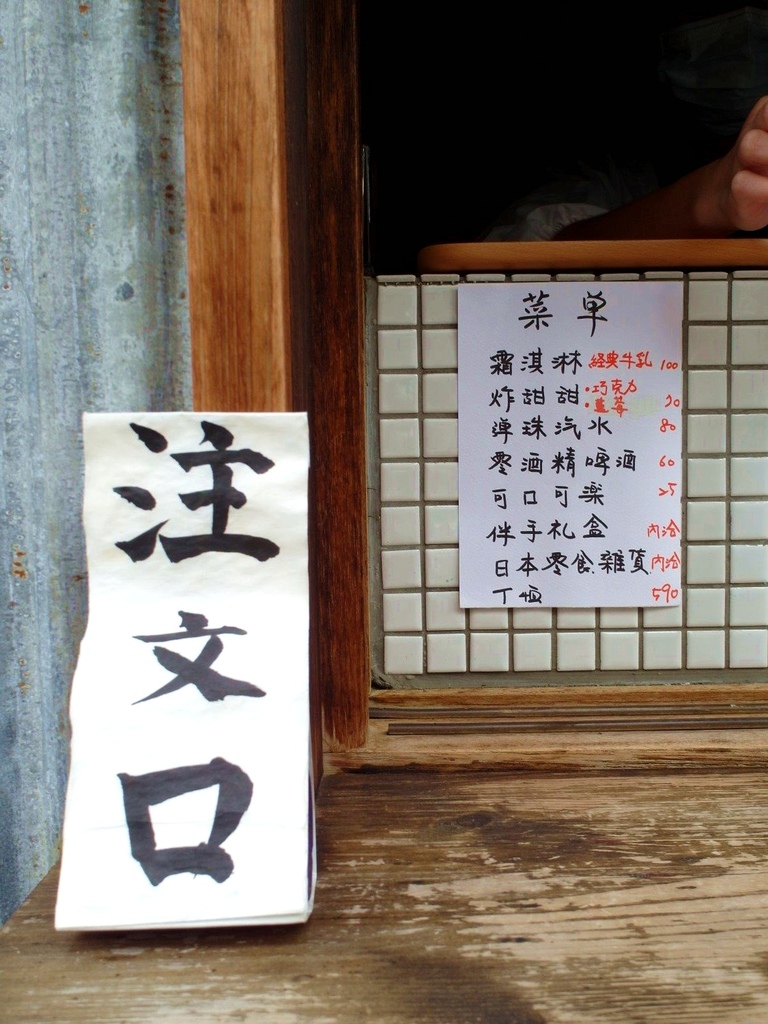 注文口
菜单
霜淇淋 経典牛乳 100
炸甜甜 ·巧克力
·藍莓 70
弾珠汽水 80
零酒精啤酒 60
可口可楽 25
伴手礼盒 內洽
日本零食.雜貨 內洽
T恤 590